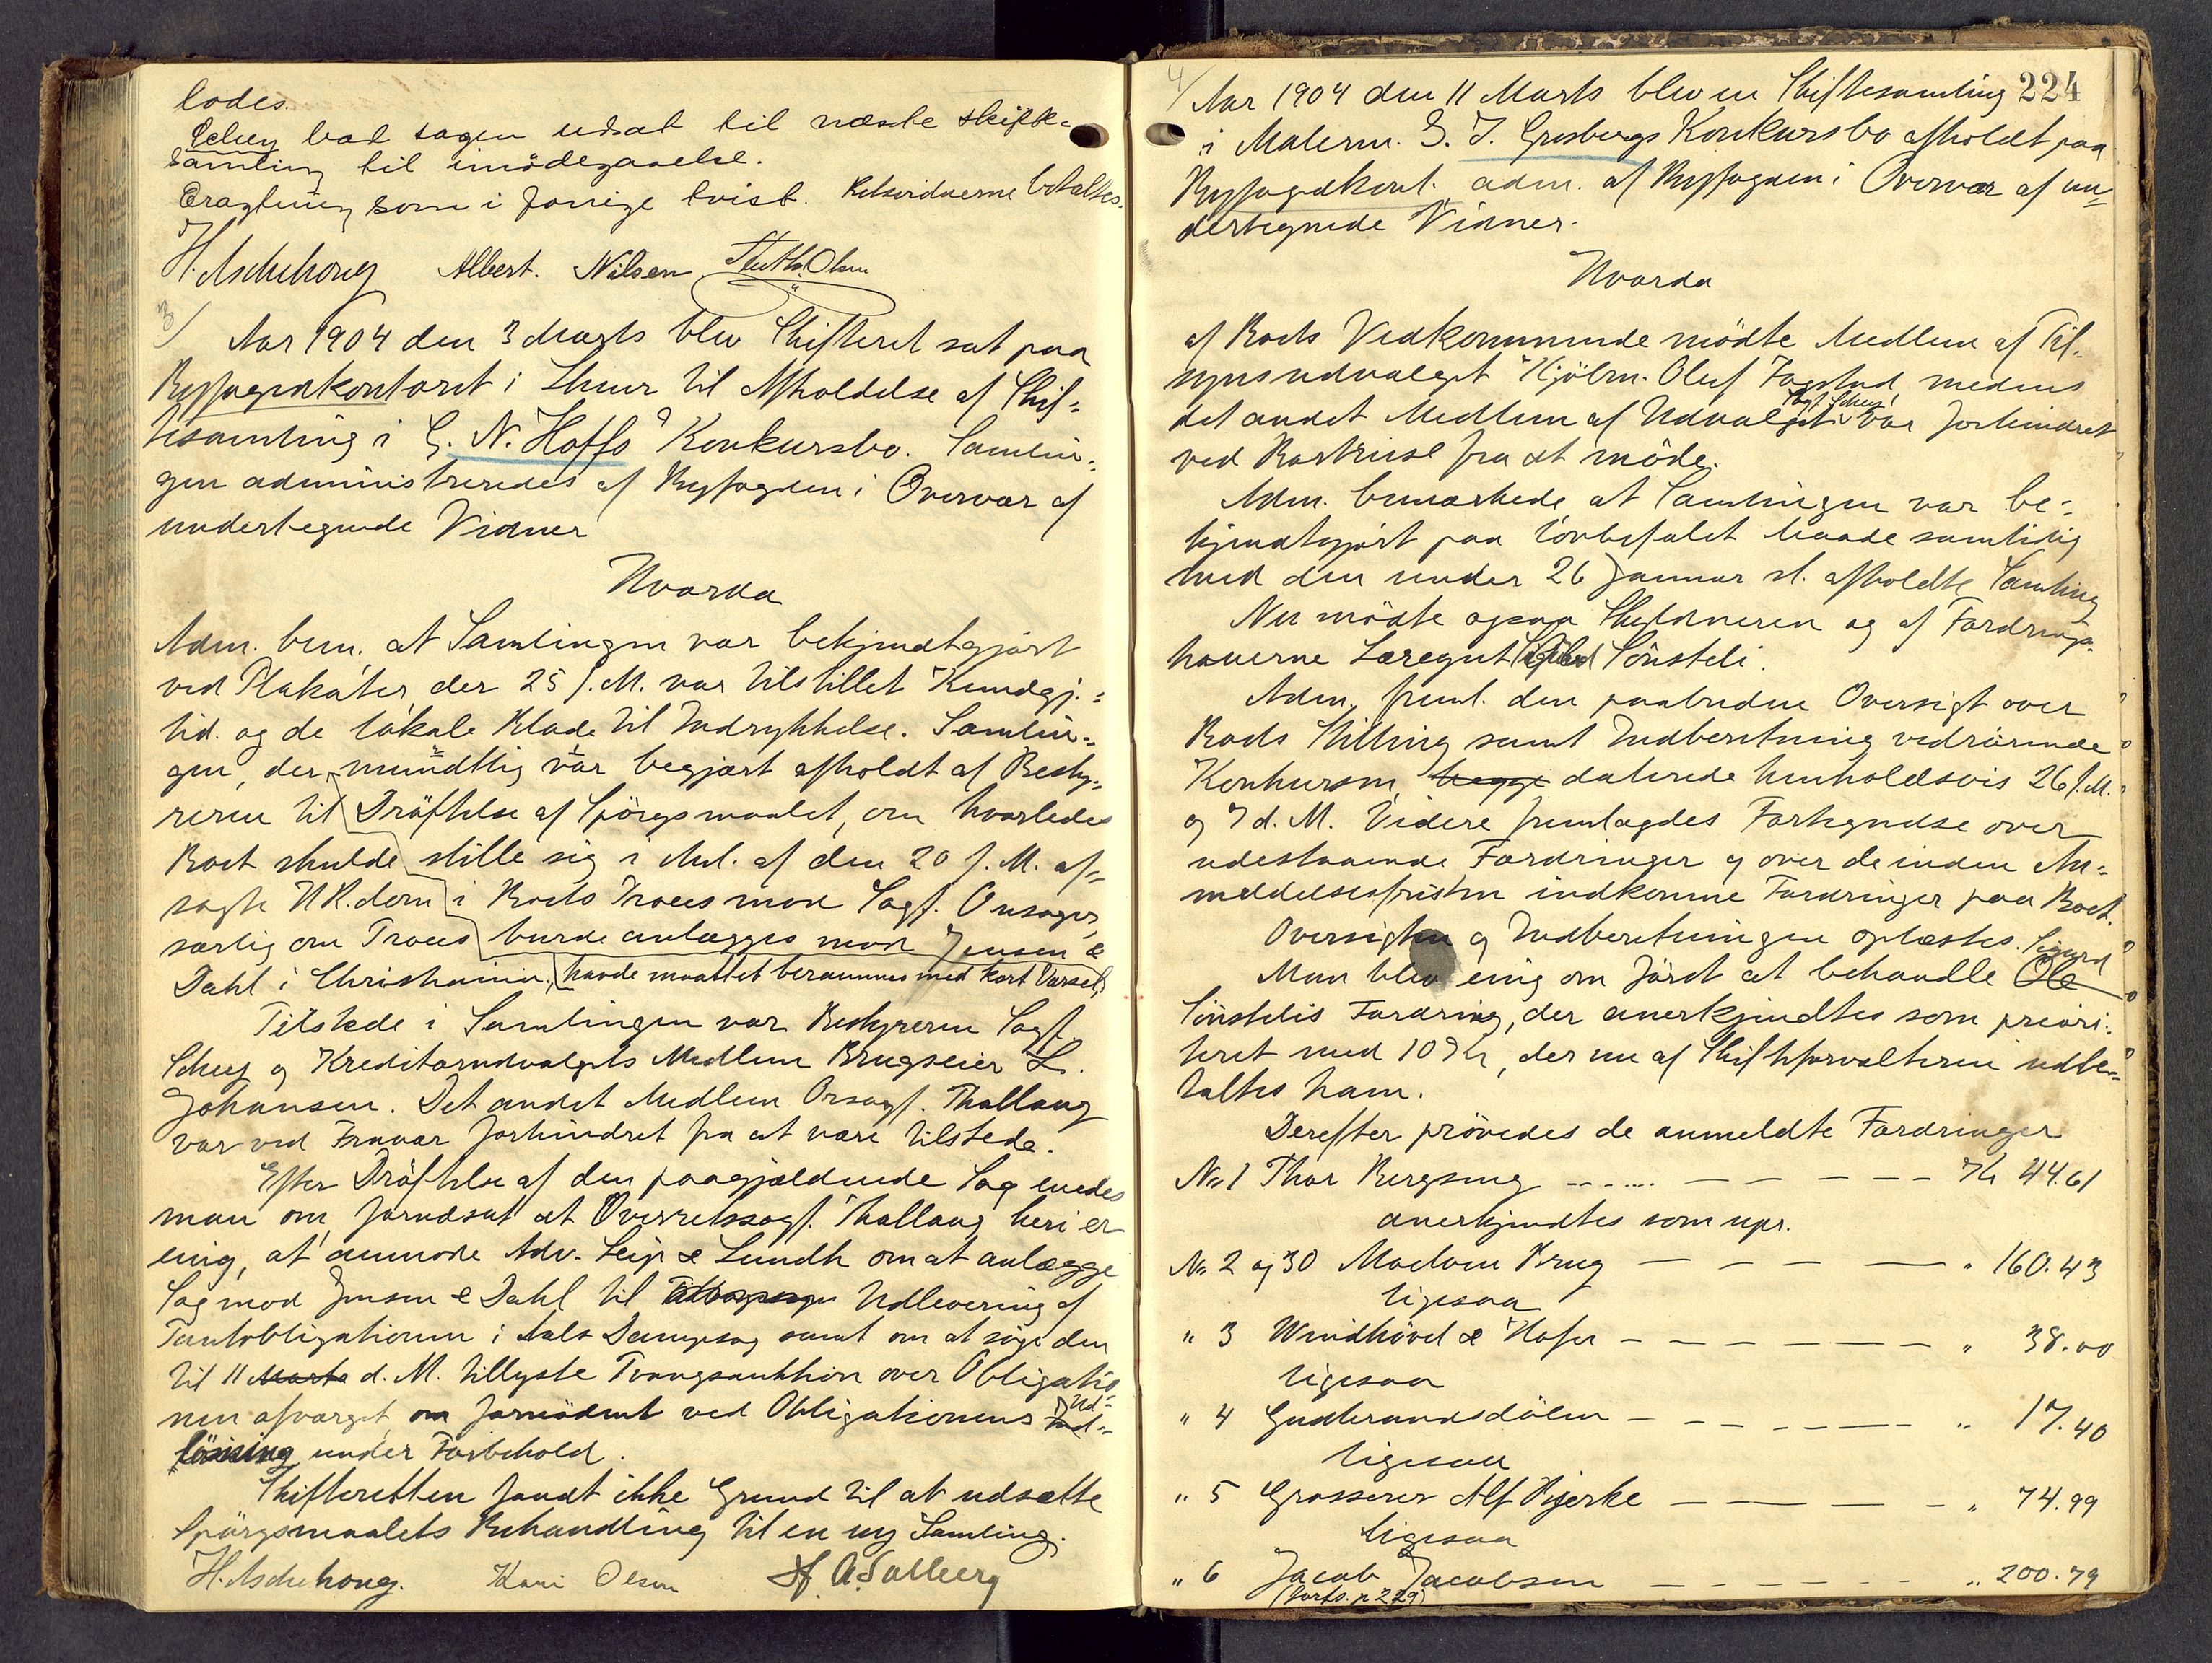 lodes.
Schey bad sagen udsat til næste skifte-
samling til imødegaaelse.
Eragtning som i forrige tvist. Retsvidnerne betaltes.
H. Aschehoug Albert. Nilsen Olsen
3/
Aar 1904 den 3 Marts blev Skifteret sat paa
Byfogedkontoret i Skien til Afholdelse af Skif-
tesamling i G. N. Hoffs Konkursbo. Samlin-
gen administreredes af Byfogden i Overvær af
undertegnede Vidner
Hvorda
Adm. bem. at Samlingen var bekjendtgjørt
ved Plakater, der 25 f. M. var tilstillet Kundgj.-
tid. og de lokale Blade til Indrykkelse. Samlin-
gen, der mundtlig var begjært afholdt af Besty-
reren til Drøftelse af Spørgsmaalet, om hvorledes
Boet skulde stille sig i Anl. af den 20 f. M. af-
sagte HR.dom i Boets Proces mod Sagf. Onsager,
særlig om Proces burde anlægges mod Jensen &
Dahl i Christiania, havde maattet berammes med kort Varsel,
Tilstede i Samlingen var Bestyreren Sagf.
Schey og Kreditorudvalgets Medlem Brugseier L.
Johansen. Det andet Medlem Orsagf. Thallaug
var ved Fravær forhindret fra at være tilstede.
Efter Drøftelse af den paagjældende Sag enedes
man om, forudsat at Overretssagf. Thallaug heri er
enig, at anmode Adv. Leip & Lundh om at anlægge
Sag mod Jensen & Dahl til Udlevering af
Pantobligationen i Aals Dampsag samt om at søge den
til 11 Marts d. M. tillyste Tvangsauktion over Obligatio-
nen afværget, om fornødent ved Obligationens Ud-
løsning under Forbehold.
Skifteretten fandt ikke Grund til at udsætte
Spørgsmaalets Behandling til en ny Samling.
H. Aschehoug. Kari Olsen A. Solberg
224
4/
Aar 1904 den 11 Marts blev en Skiftesamling
i Malerm. G. J. Grosbergs Konkursbo afholdt paa
Byfogedkont. adm. af Byfogden i Overvær af un-
dertegnede Vidner.
Hvorda
af Boets Vedkommende mødte Medlem af Til-
synsudvalget Kjøbm. Oluf Fagstad medens
det andet Medlem af Udvalget Sagf. Schey var forhindret
ved Bortreise fra at møde.
Adm. bemærkede at Samlingen var be-
kjendtgjørt paa lovbefalet Maade samtidig
med den under 26 Januar sl. afholdte Samling
Nu mødte ogsaa Skyldneren og af Fordrings-
haverne Læregut Sønsteli.
Adm. freml. den paabudne Oversigt over
Boets Stilling samt Indberetning vedrørende
Konkursen, begge daterede henholdsvis 26 f. M.
og 7 d. M. Videre fremlagdes Fortegnelse over
udestaaende Fordringer og over de inden An-
meldelsesfristen indkomne Fordringer paa Boet.
Oversigten og Indberetningen oplæstes.
Man blev enig om først at behandle Ole Sigurd
Sønstelis Fordring, der anerkjendtes som priori-
teret med 10 Kr, der nu af Skifteforvalteren udbe-
taltes ham.
Derefter prøvedes de anmeldte Fordringer
No 1 Thor Bergseng - - - Kr 44.61
anerkjendtes som upr.
No 2 og 30 Moelven Brug - - - " 160.43
ligesaa
" 3 Windhövel & Hofer - - - " 38.00
ligesaa
" 4 Gudbrandsdölen - - - " 17.40
ligesaa
" 5 Grosserer Alf Bjerke - - - " 74.99
ligesaa
" 6 Jacob Jacobsen - - - " 200.79
(forts. p 229)